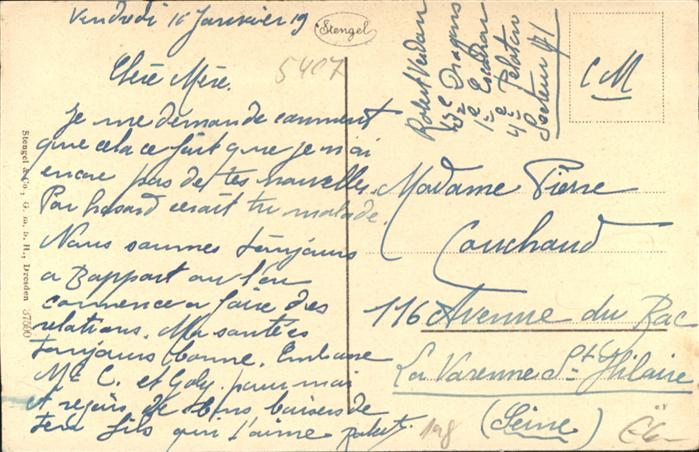 Vendredi 16 Janvier 19
Stengel
5407
Chère Mère.
Je me demande comment
que cela ce fait que je n'ai
encre pas de tes nouvelles.
Par hasard serait tu malade.
Nous sommes toujours
a Bappart ou l'on
commence a faire des
relations. Ma santé es
toujours bonne. Embrasse
Mr C. et Goly pour moi
et reçois de bons baisers de
ton fils qui t'aime Robert.
Stengel & Co., G. m. b. H., Dresden 37000
Robert Verdan
13e Dragons
1e Escadron
4e Peloton
Secteur 171
CM
Madame Pierre
Couchaud
116 Avenue du Bac
La Varenne St Hilaire
(Seine)